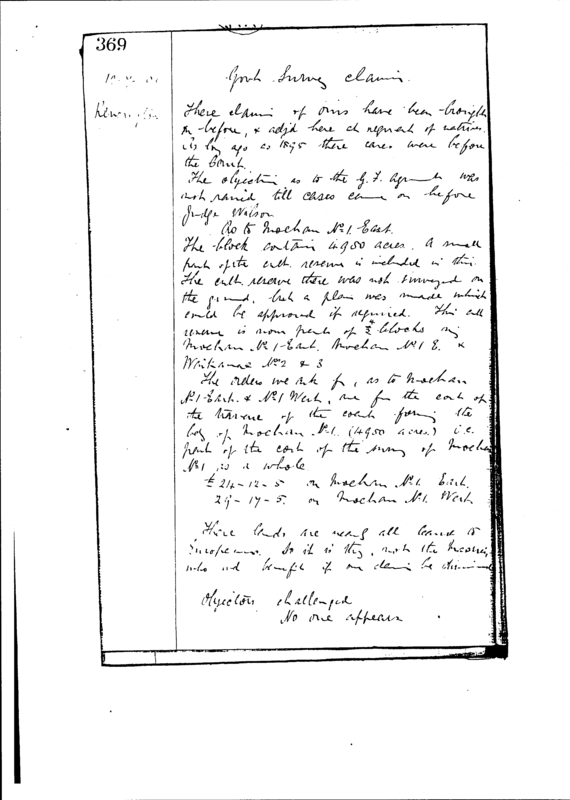 369
Govt. Survey claims.
These claims of ours have been brought
on before, & adjd here at request of natives.
As long ago as 1895 these cases were before
the Court.
The objection as to the G. F. Agmt was
not raised till cases came on before
Judge Wilson
As to Moehau No 1 East.
The block contains 4980 acres. A small
part of the cult. reserve is included in this.
The cult. reserve there was not surveyed on
the ground, but a plan was made which
could be approved if required. This cult
reserve is now part of blocks viz
Moehau No 1 East. Moehau No 1 &
No 2 & 3
The orders we ask for, as to Moehau
No 1 East. & No 1 West, are for the cost of
the traverse of the coast forming the
bdy of Moehau No 1. (4980 acres) i.e.
part of the cost of the survey of Moehau
No 1 as a whole
£24-12-5 on Moehau No 1 East.
29-17-5. on Moehau No 1. West
These lands are nearly all leased to
Europeans. So it is they, not the Maoris,
who wd benefit if our claim be dismissed
Objectors challenged
No one appears